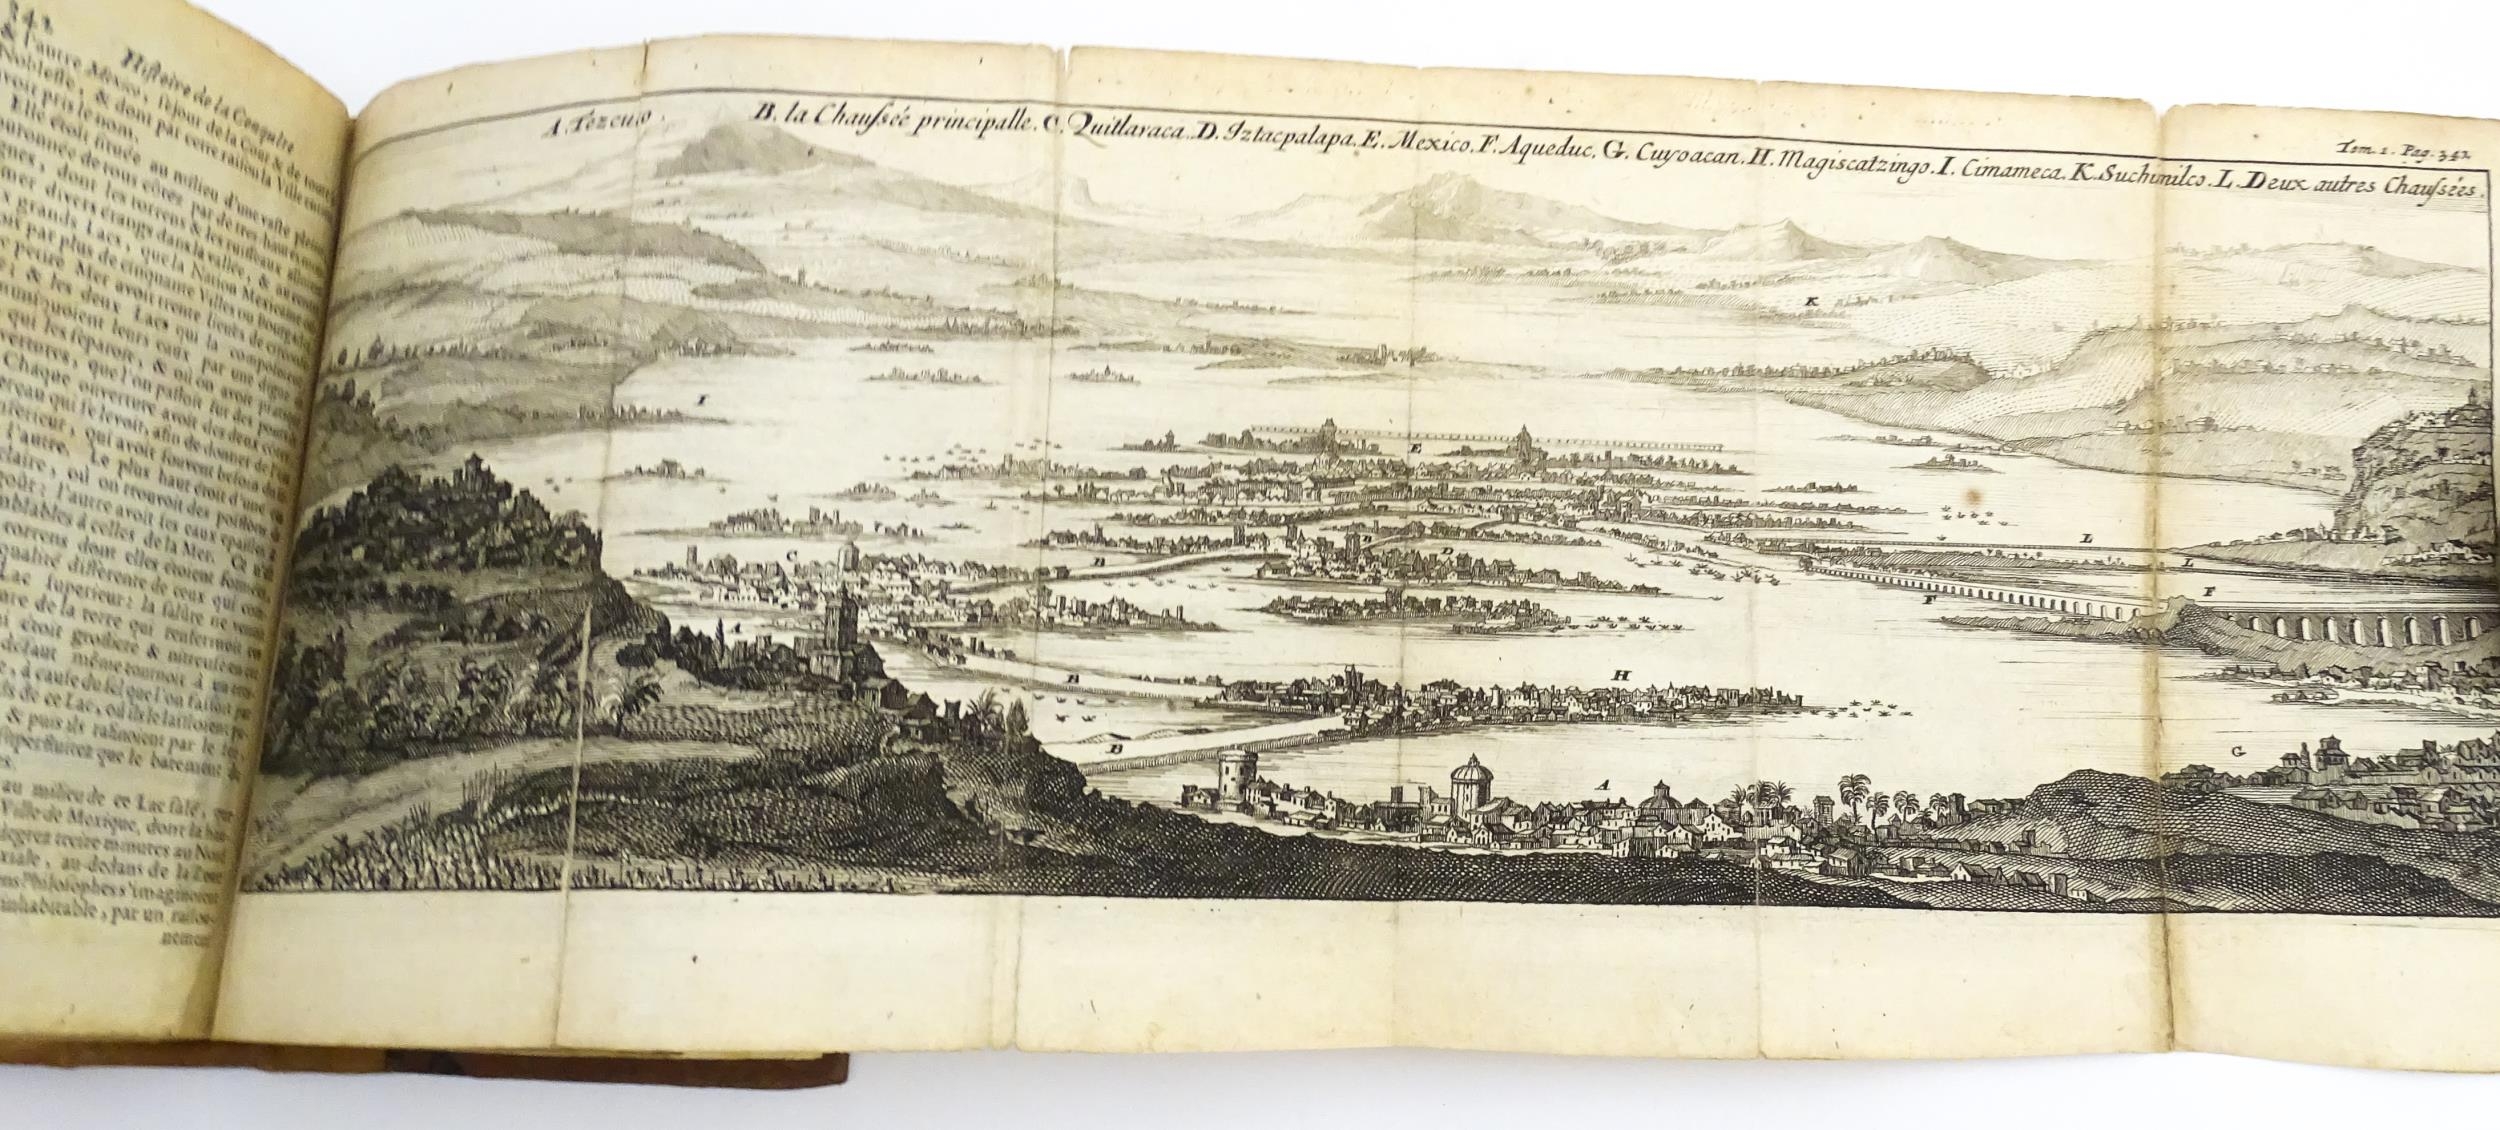 342
Histoire de la Conquête
& l'autre Mexico, séjour de la Cour & de toute la
Noblesse, & dont par cette raison la Ville entiere
avoit pris le nom.
Elle étoit située au milieu d'une vaste plein
couronnée de tous côtez par de tres-hautes mon
gnes, dont les torrens & les ruisseaux alloient
mer divers étangs dans la vallée, &
grands Lacs, que la Nation Mexicaine
par plus de cinquante Villes ou Bourgad
petite Mer avoit trente lieuës de circonfe
& les deux Lacs qui la composoient
muniquoient leurs eaux par une digue
qui les separoit, & où on avoit pratiqué
vertures, que l'on passoit sur des ponts
Chaque ouverture avoit des deux côtez
reau qui se levoit, afin de donner de l'eau
inferieur, qui avoit souvent besoin du
l'autre. Le plus haut étoit d'une eau
claire, où on trouvoit des poissons de
goût; l'autre avoit ses eaux épaisses &
semblables à celles de la Mer. Ce n'est
torrens dont elles étoient formées
qualité differente de ceux qui
Lac superieur: la salûre ne venoit
de la terre qui renfermoit
étoit grossiere & nitreuse en cet
defaut même tournoit à un
, à cause du sel que l'on faisoit
de ce Lac, où ils le laissoient
& puis ils rafinoient par le feu
superfluitez que le battement de
au milieu de ce Lac salé, que
Vallée de Mexique, dont la hau
degrez treize minutes au Nord
xiale, au-dedans de la Zone
Philosophes s'imaginoient
inhabitable, par un raison-
nement
Tom. 1. Pag. 342
A. Tezcuco. B. la Chaussée principalle. C. Quitlavaca. D. Iztacpalapa. E. Mexico. F. Aqueduc. G. Cuyoacan. H. Magiscatzingo. I. Cimameca. K. Suchimilco. L. Deux autres Chaussées.
K
I
E
L
C
B
B
D
L
F
F
B
H
B
G
A